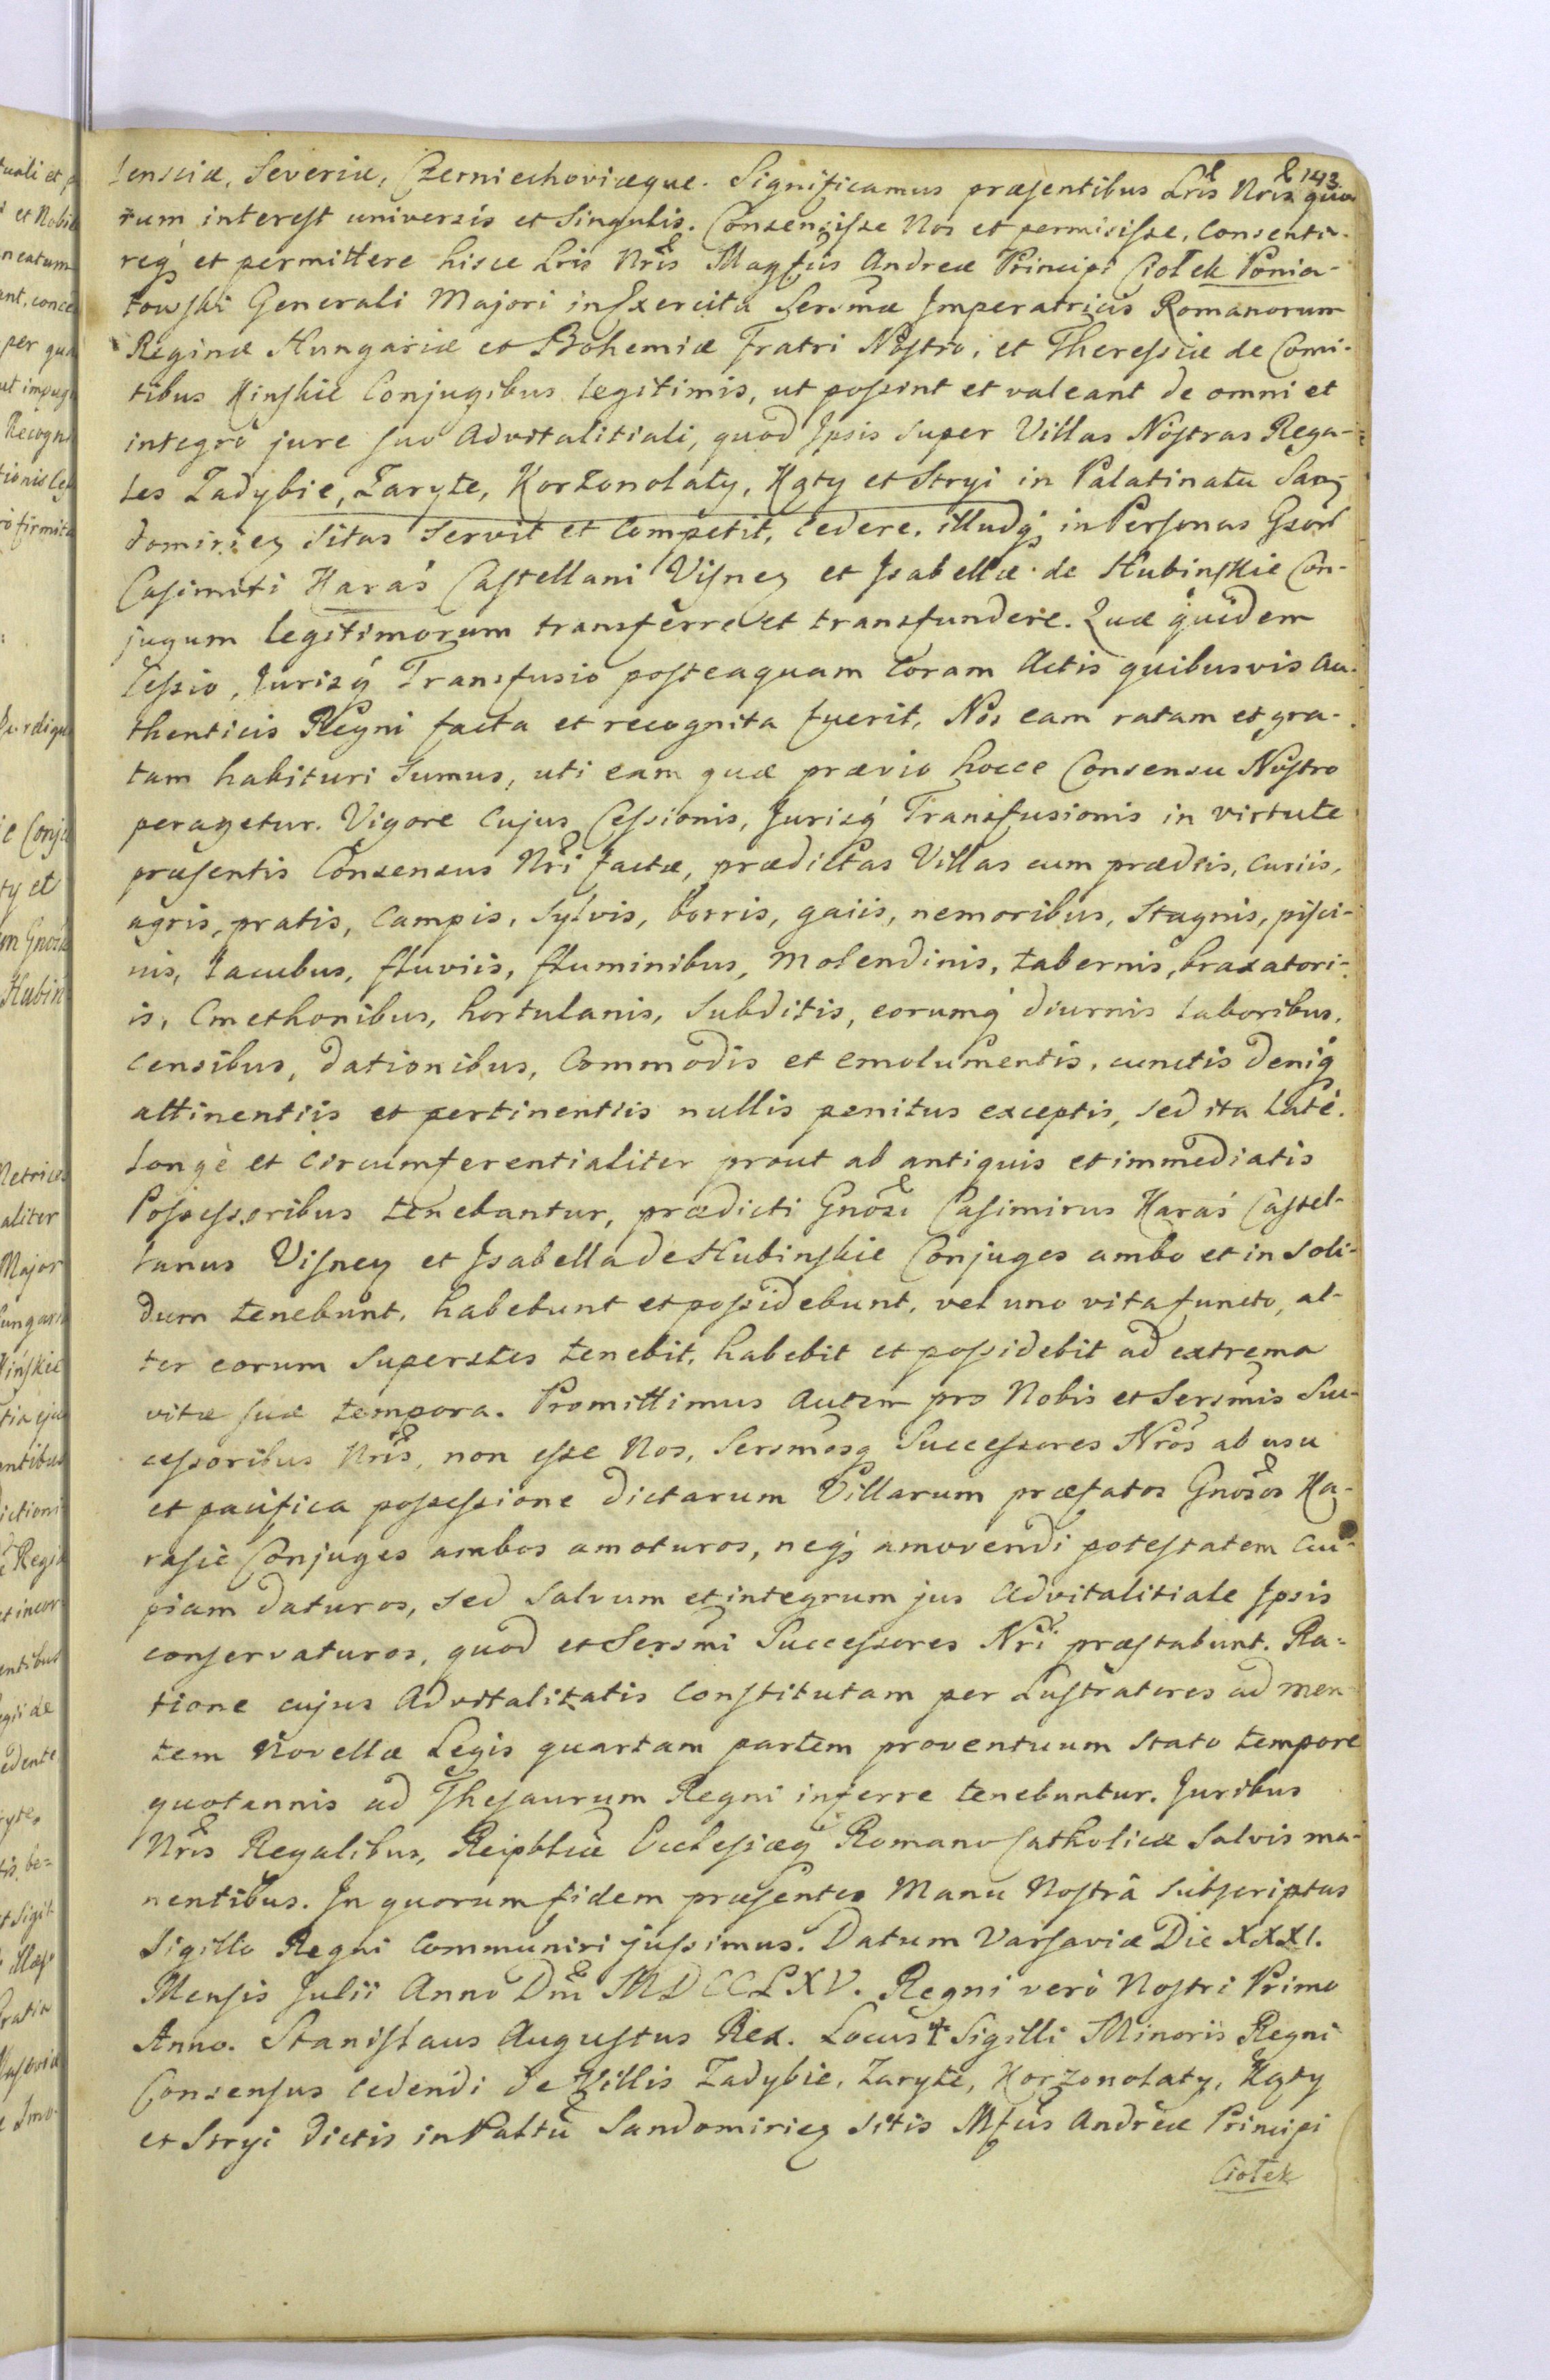 143
lensciæ, Severiæ, Czerniechoviæque. Significamus præsentibus Lris Nris quo-
rum interest universis et Singulis. Consensisse Nos et permisisse, Consenti-
reqȝ et permittere hisce Lris Nris Magfus Andreæ Principi Ciołek Ponia-
towski Generali Majori in Exercitu Sersmæ Imperatricis Romanorum
Reginæ Hungariæ et Bohemiæ Fratri Nostro, et Theressiæ de Comi-
tibus Kinskie Conjugibus legitimis, ut possint et valeant de omni et
integro jure suo Advitalitiali, quod Ipsis super Villas Nostras Rega-
les Zadybie, Zaryte, Korzonolaty, Kąty et Stryi in Palatinatu San-
domirieȝ Sitas Servit et Competit, Cedere, illudqȝ in Personas Gsorū
Casimiri Karaś Castellani Visneȝ et Isabellæ de Kubinskie Con-
jugum legitimorum transferre et transfundere. Quæ quidem
Cessio, Jurisqȝ Transfusio posteaquam Coram Actis quibusvis Au-
thenticis Regni facta et recognita fuerit, Nos eam ratam et gra-
tam habituri Sumus, uti eam quæ prævio hocce Consensu Nostro
peragetur. Vigore Cujus Cessionis, Jurisqȝ Transfusionis in virtute
præsentis Consensus Nri factæ, prædictas Villas cum prædiis, Curiis,
agris, pratis, Campis, Sylvis, borris, gaiis, nemoribus, Stagnis, pisci-
nis, lacubus, fluviis, fluminibus, Molendinis, tabernis, braxatori-
is, Cmethonibus, hortulanis, Subditis, eorumqȝ diurnis laboribus,
Censibus, dationibus, Commodis et emolumentis, cunctis deniqȝ
attinentiis et pertinentiis nullis penitus exceptis, sed ita latè.
longè et Circumferentialiter prout ab antiquis et immediatis
Possessoribus tenebantur, prædicti Gnosi Casimirus Karaś Castel-
lanus Visneȝ et Isabella de Kubinskie Conjuges ambo et in Soli-
dum tenebunt, habebunt et possidebunt, vel uno vita functo, al-
ter eorum Superstes tenebit, habebit et possidebit ad extrema
vitæ suæ tempora. Promittimus autem pro Nobis et Sersmis Suc-
cessoribus Nris, non esse Nos, Sersmosqȝ Successores Nros ab usu
et pacifica possessione dictarum Villarum præfatos Gnosos Ka-
rasie Conjuges ambos amoturos, neqȝ amovendi potestatem Cui-
piam daturos, sed Salvum et integrum jus Advitalitiale Ipsis
conservaturos, quod et Sersmi Successores Nri præstabunt. Ra-
tione cujus Advitalitatis Constitutam per Lustratores ad men-
tem Novellæ Legis quartam partem proventuum stato tempore
quotannis ad Thesaurum Regni inferre tenebuntur. Juribus
Nris Regalibus, Reipblicæ Ecclesiæqȝ Romano Catholicæ Salvis ma-
nentibus. In quorum fidem præsentes Manu Nostrâ Subscriptas
Sigillo Regni Communiri jussimus. Datum Varsaviæ Die XXXI.
Mensis Julii Anno Dni MDCCLXV. Regni verò Nostri Primo
Anno. Stanislaus Augustus Rex. Locus ✝ Sigilli Minoris Regni
Consensus Cedendi de Villis Zadybie, Zaryte, Korzonolaty, Kąty
et Stryi dictis in Paltu Sandomirieȝ Sitis Mfus Andreæ Principi
Ciołek